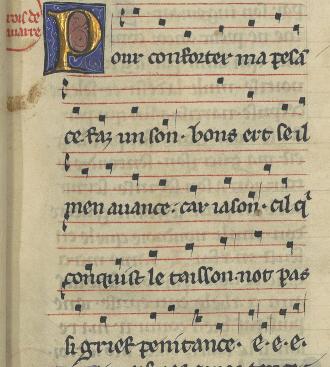 rois de
nauarre
Pour conforter ma pesā
ce faz un son. bons ert se il
men auance. car iason. cil qͥ
conquist le taisson. not pas
si grief penitance. e. e. e.